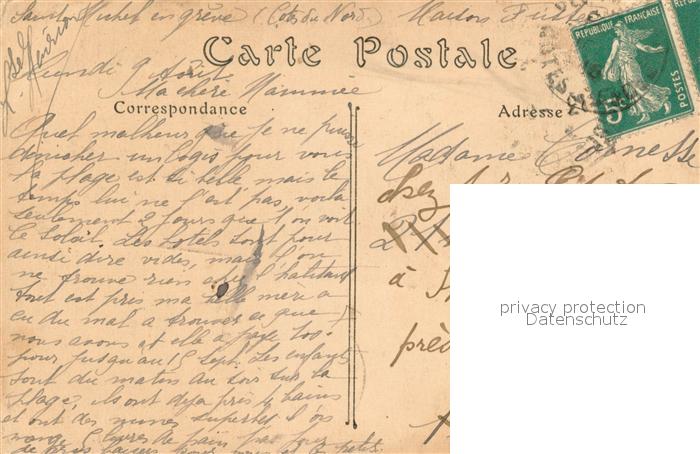 Saint Michel en grève (Côtes du Nord) Maison
Carte Postale
Lundi 9 Août
Ma chère Mammée
Correspondance
Adresse
REPUBLIQUE FRANÇAISE
POSTES
5
Quel malheur que je ne puisse
dénicher un logis pour vous
la plage est si belle, mais le
temps lui ne l'est pas, voilà
seulement 2 jours que l'on voit
le soleil. Les hôtels sont pour
ainsi dire vides, mais l'on
ne trouve rien chez l'habitant
tout est pris ma belle mère a
eu du mal a trouver ce que
nous avons, et elle a payé
pour jusqu'au 15 Sept. Les enfants
sont du matin au soir sur la
plage, ils ont déjà pris 4 bains
et ont des mines superbes
mange 5 livres de pain par jour
Madame
chez
à
près
privacy protection
Datenschutz